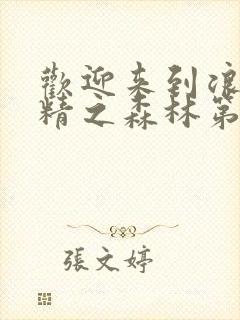 歡迎来到浪
精之森林第
張文婷